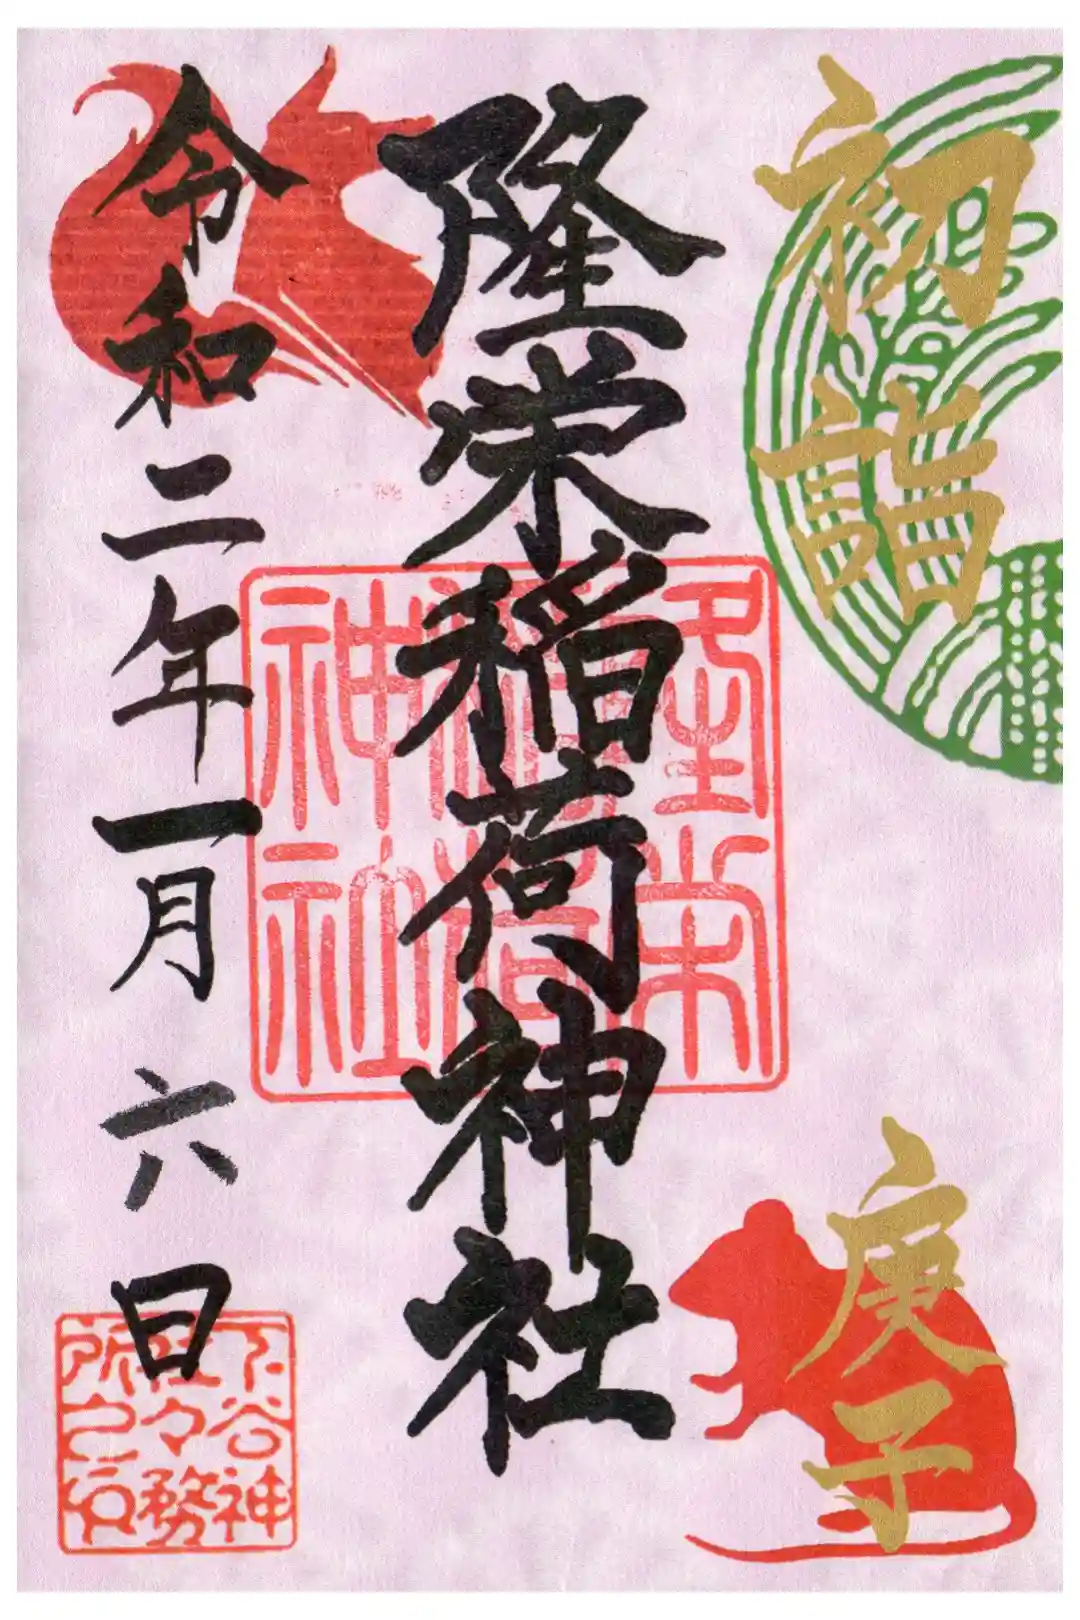 初詣
庚子
隆栄稲荷神社
隆栄
稲荷
神社
令和二年一月六日
下谷神
社々務
所之印